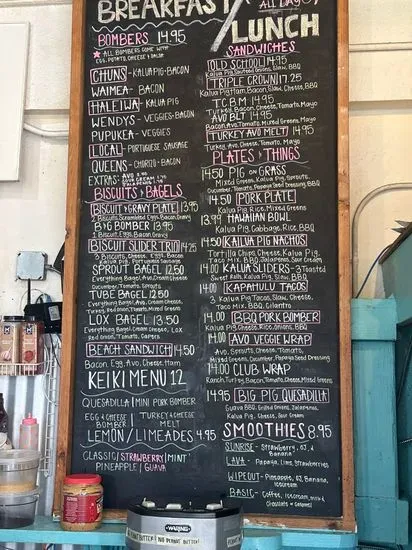 BREAKFAST / LUNCH
ALL DAY
BOMBERS 14.95
* ALL BOMBERS COME WITH
EGG, POTATO, CHEESE & BACON
CHUNS - KALUA PIG-BACON
WAIMEA - BACON
HALEIWA - KALUA PIG
WENDYS - VEGGIES-BACON
PUPUKEA - VEGGIES
LOCAL - PORTUGUESE SAUSAGE
QUEENS - CHORIZO-BACON
EXTRAS:
BISCUITS & BAGELS
BISCUIT & GRAVY PLATE 13.95
2 Biscuits, Scrambled Eggs, Bacon, Gravy
BIG BOMBER 13.95
2 Biscuits, Egg, Bacon, Gravy
BISCUIT SLIDER TRIO 14.25
3 Biscuits, Cheese, Egg, Bacon
Kalua Pig, Portuguese Sausage
SPROUT BAGEL 12.50
Everything Bagel, Avo, Cream Cheese
Cucumber, Tomato, Sprouts
TUBE BAGEL 12.50
Everything Bagel, Avo, Cream Cheese,
Turkey, Red Onion, Tomato, Mixed Greens
LOX BAGEL 13.50
Everything Bagel, Cream Cheese, LOX
Red Onion, Tomato, Capers
BEACH SANDWICH 14.50
Bacon, Egg, Avo, Cheese, Ham
KEIKI MENU 12
QUESADILLA | MINI PORK BOMBER
EGG & CHEESE BOMBER | TURKEY & CHEESE MELT
LEMON / LIMEADES 4.95
CLASSIC / STRAWBERRY / MINT
PINEAPPLE / GUAVA
SANDWICHES
OLD SCHOOL 14.95
TRIPLE CROWN 17.25
Kalua Pig, Ham, Bacon, Slaw, Cheese, BBQ
TCBM 14.95
Turkey, Bacon, Cheese, Tomato, Mayo
AVO BLT 14.95
Bacon, Avo, Tomato, Mixed Greens, Mayo
TURKEY AVO MELT 14.95
Turkey, Avo, Cheese, Tomato, Mayo
PLATES & THINGS
14.50 PIG ON GRASS
Mixed Greens, Kalua Pig, Sprouts,
Cucumber, Tomato, Papaya Seed Dressing, BBQ
14.50 PORK PLATE
Kalua Pig, Rice, Mixed Greens
13.99 HAWAIIAN BOWL
Kalua Pig, Cabbage, Rice, BBQ
14.50 KALUA PIG NACHOS
Tortilla Chips, Cheese, Kalua Pig,
Taco Mix, BBQ, Jalapenos, Sour Cream
14.00 KALUA SLIDERS - 3 Toasted
Sweet Rolls, Kalua Pig, Slaw, BBQ
14.00 KAPAHULU TACOS
3 Kalua Pig Tacos, Slaw, Cheese,
Taco Mix, BBQ, Cilantro
14.00 BBQ PORK BOMBER
Kalua Pig, Cheese, Rice, Onions, BBQ
14.00 AVO VEGGIE WRAP
Avo, Sprouts, Cheese, Tomato,
Mixed Greens, Cucumber, Papaya Seed Dressing
14.00 CLUB WRAP
Ranch, Turkey, Bacon, Tomato, Cheese, Mixed Greens
14.95 BIG PIG QUESADILLA
Guava BBQ, Grilled Onions, Jalapenos,
Kalua Pig, Cheese, Sour Cream
SMOOTHIES 8.95
SUNRISE - Strawberry, OJ, &
Banana
LAVA - Papaya, Lime, Strawberries
WIPEOUT - Pineapple, OJ, Banana,
Icecream
BASIC - Coffee, Icecream, Milk,
Chocolate or Caramel
WARNING
NO PEANUT BUTTER!